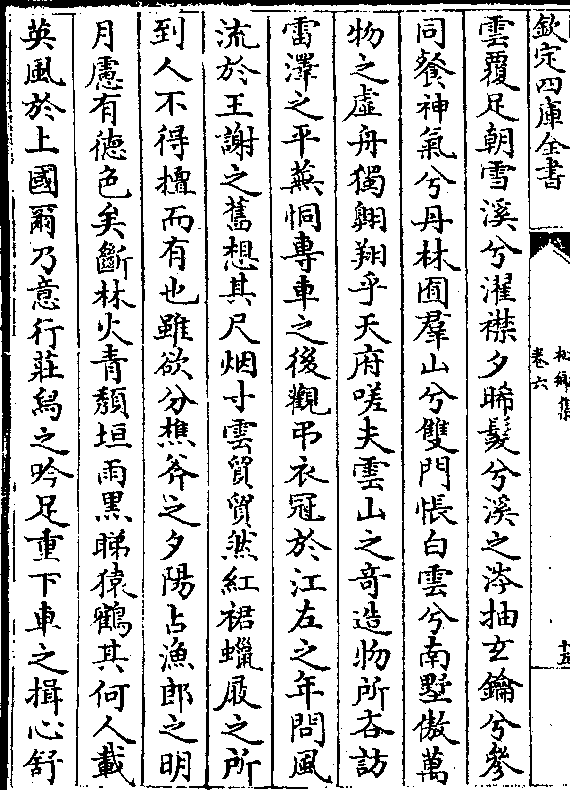 欽定四庫全書
松鄉集
卷六
十五
雲覆足朝雪溪兮濯襟夕晞髮兮溪之涔抽玄鑰兮參
同餐神氣兮丹林囿羣山兮雙門悵白雲兮南墅傲萬
物之虛舟獨翺翔乎天府嗟夫雲山之竒造物所吝訪
雷澤之平蕪恫專車之後觀弔衣冠於江左之年問風
流於王謝之舊想其尺烟寸雲貿貿然紅裙蠟屐之所
到人不得擅而有也雖欲分樵斧之夕陽占漁郎之明
月慮有徳色矣斷林火青頽垣雨黒睇猿鶴其何人載
英風於上國爾乃意行莊舄之吟足重下車之揖心舒